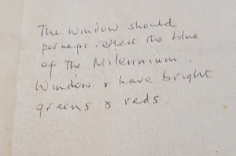 The window should
perhaps reflect the blue
of the Milennium
Window & have bright
greens & reds.